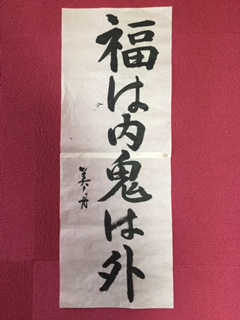 福は内鬼は外